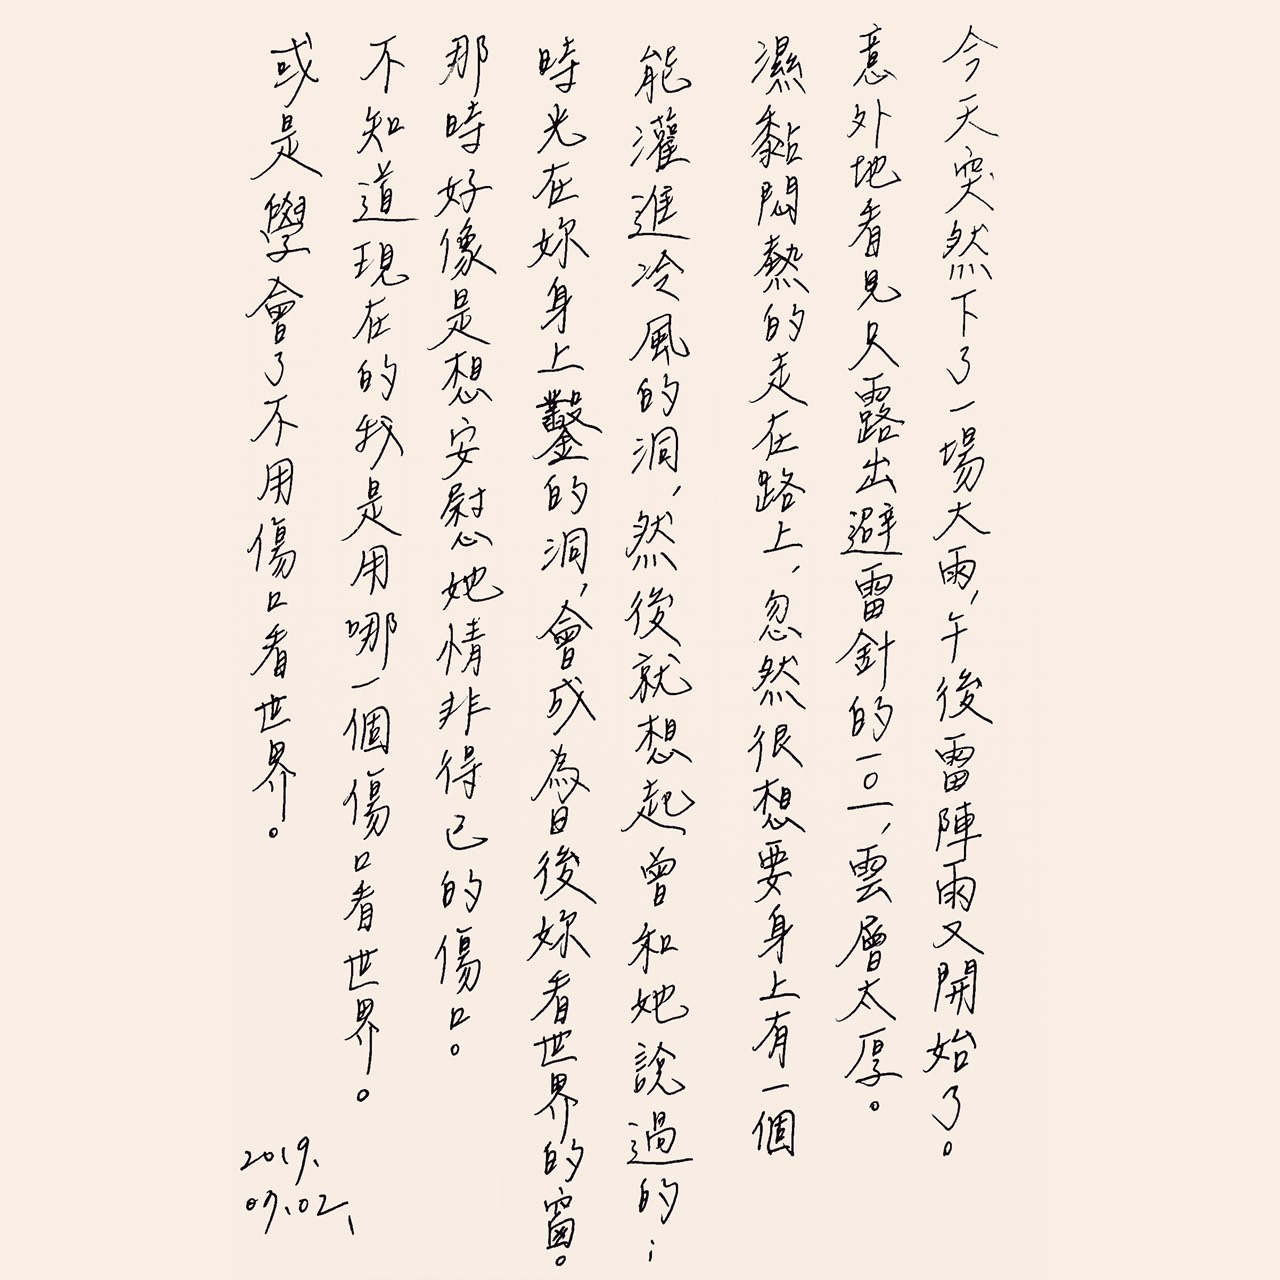 今天突然下了一場大雨,午後雷陣雨又開始了。
意外地看見只露出避雷針的一〇一,雲層太厚。
濕黏悶熱的走在路上,忽然很想要身上有一個
能灌進冷風的洞,然後就想起曾和她說過的;
時光在妳身上鑿的洞,會成為日後妳看世界的窗。
那時好像是想安慰她情非得已的傷口。
不知道現在的我是用哪一個傷口看世界。
或是學會了不用傷口看世界。
2019.
07.02.